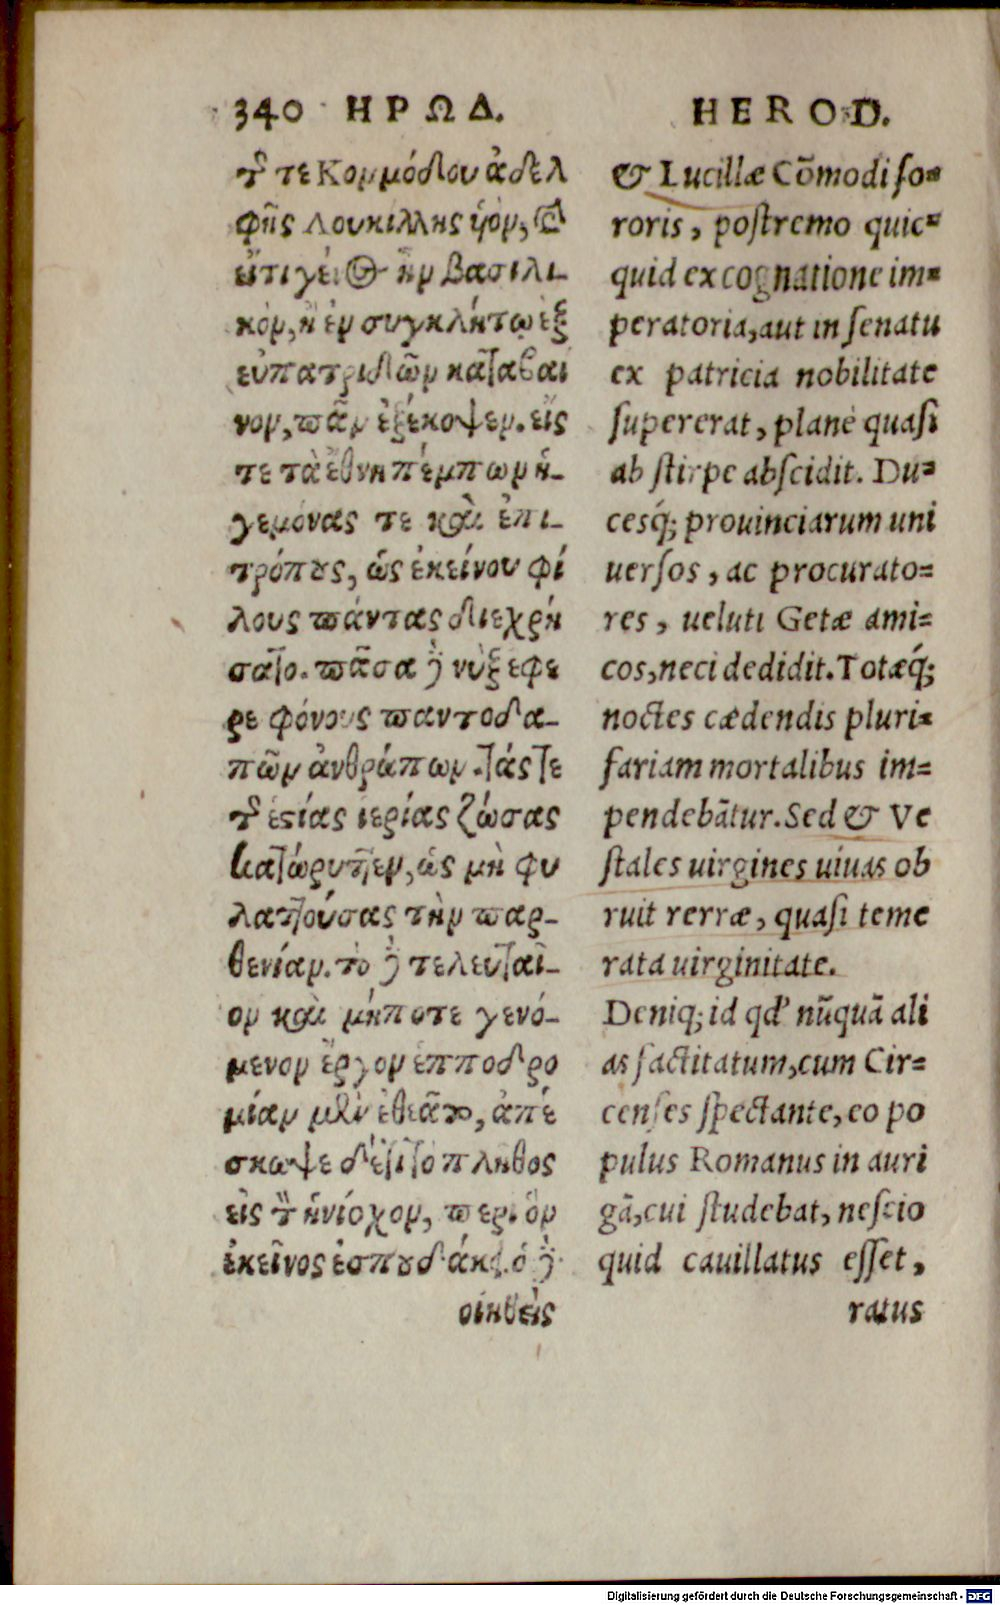 340 ΗΡΩΔ.
τ͂ τε Κομμόδου ἀδελ
φῆς Λουκίλλης ὑὸν, καὶ
εἴτι γένος ἦν βασιλι-
κὸν, ἢ ἐν συγκλήτῳ ἐξ
εὐπατριδῶν καταβαῖ
νον, πᾶν ἐξέκοψεν. εἴς
τε τὰ ἔθνη πέμπων ἡ-
γεμόνας τε καὶ ἐπι-
τρόπους, ὡς ἐκείνου φί
λους πάντας διεχρή
σατο. πᾶσα δὲ νὺξ ἔφε
ρε φόνους παντοδα-
πῶν ἀνθρώπων. τάς τε
τ͂ ἑστίας ἱερίας ζώσας
κατώρυττεν, ὡς μὴ φυ
λαττούσας τὴν παρ-
θενίαν. τὸ δὲ τελευταῖ-
ον καὶ μήποτε γενό-
μενον ἔργον ἱπποδρο
μίαν μὲν ἐθεᾶτο, ἀπέ
σκωψε δέ τι τὸ πλῆθος
εἰς τ͂ ἡνίοχον, περὶ ὃν
ἐκεῖνος ἐσπουδάκει. ὁ δὲ
οἰηθεὶς
HEROD.
& Lucillæ Cõmodi so=
roris, postremo quic=
quid ex cognatione im=
peratoria, aut in senatu
ex patricia nobilitate
supererat, planè quasi
ab stirpe abscidit. Du=
cesq́; prouinciarum uni
uersos, ac procurato=
res, ueluti Getæ ami=
cos, neci dedidit. Totæq́;
noctes cædendis pluri=
fariam mortalibus im=
pendebãtur. Sed & Ve
stales uirgines uiuas ob
ruit rerræ, quasi teme
rata uirginitate.
Deniq; id qd' nũquã ali
as factitatum, cum Cir=
censes spectante, eo po
pulus Romanus in auri
gã, cui studebat, nescio
quid cauillatus esset,
ratus
Digitalisierung gefördert durch die Deutsche Forschungsgemeinschaft - DFG